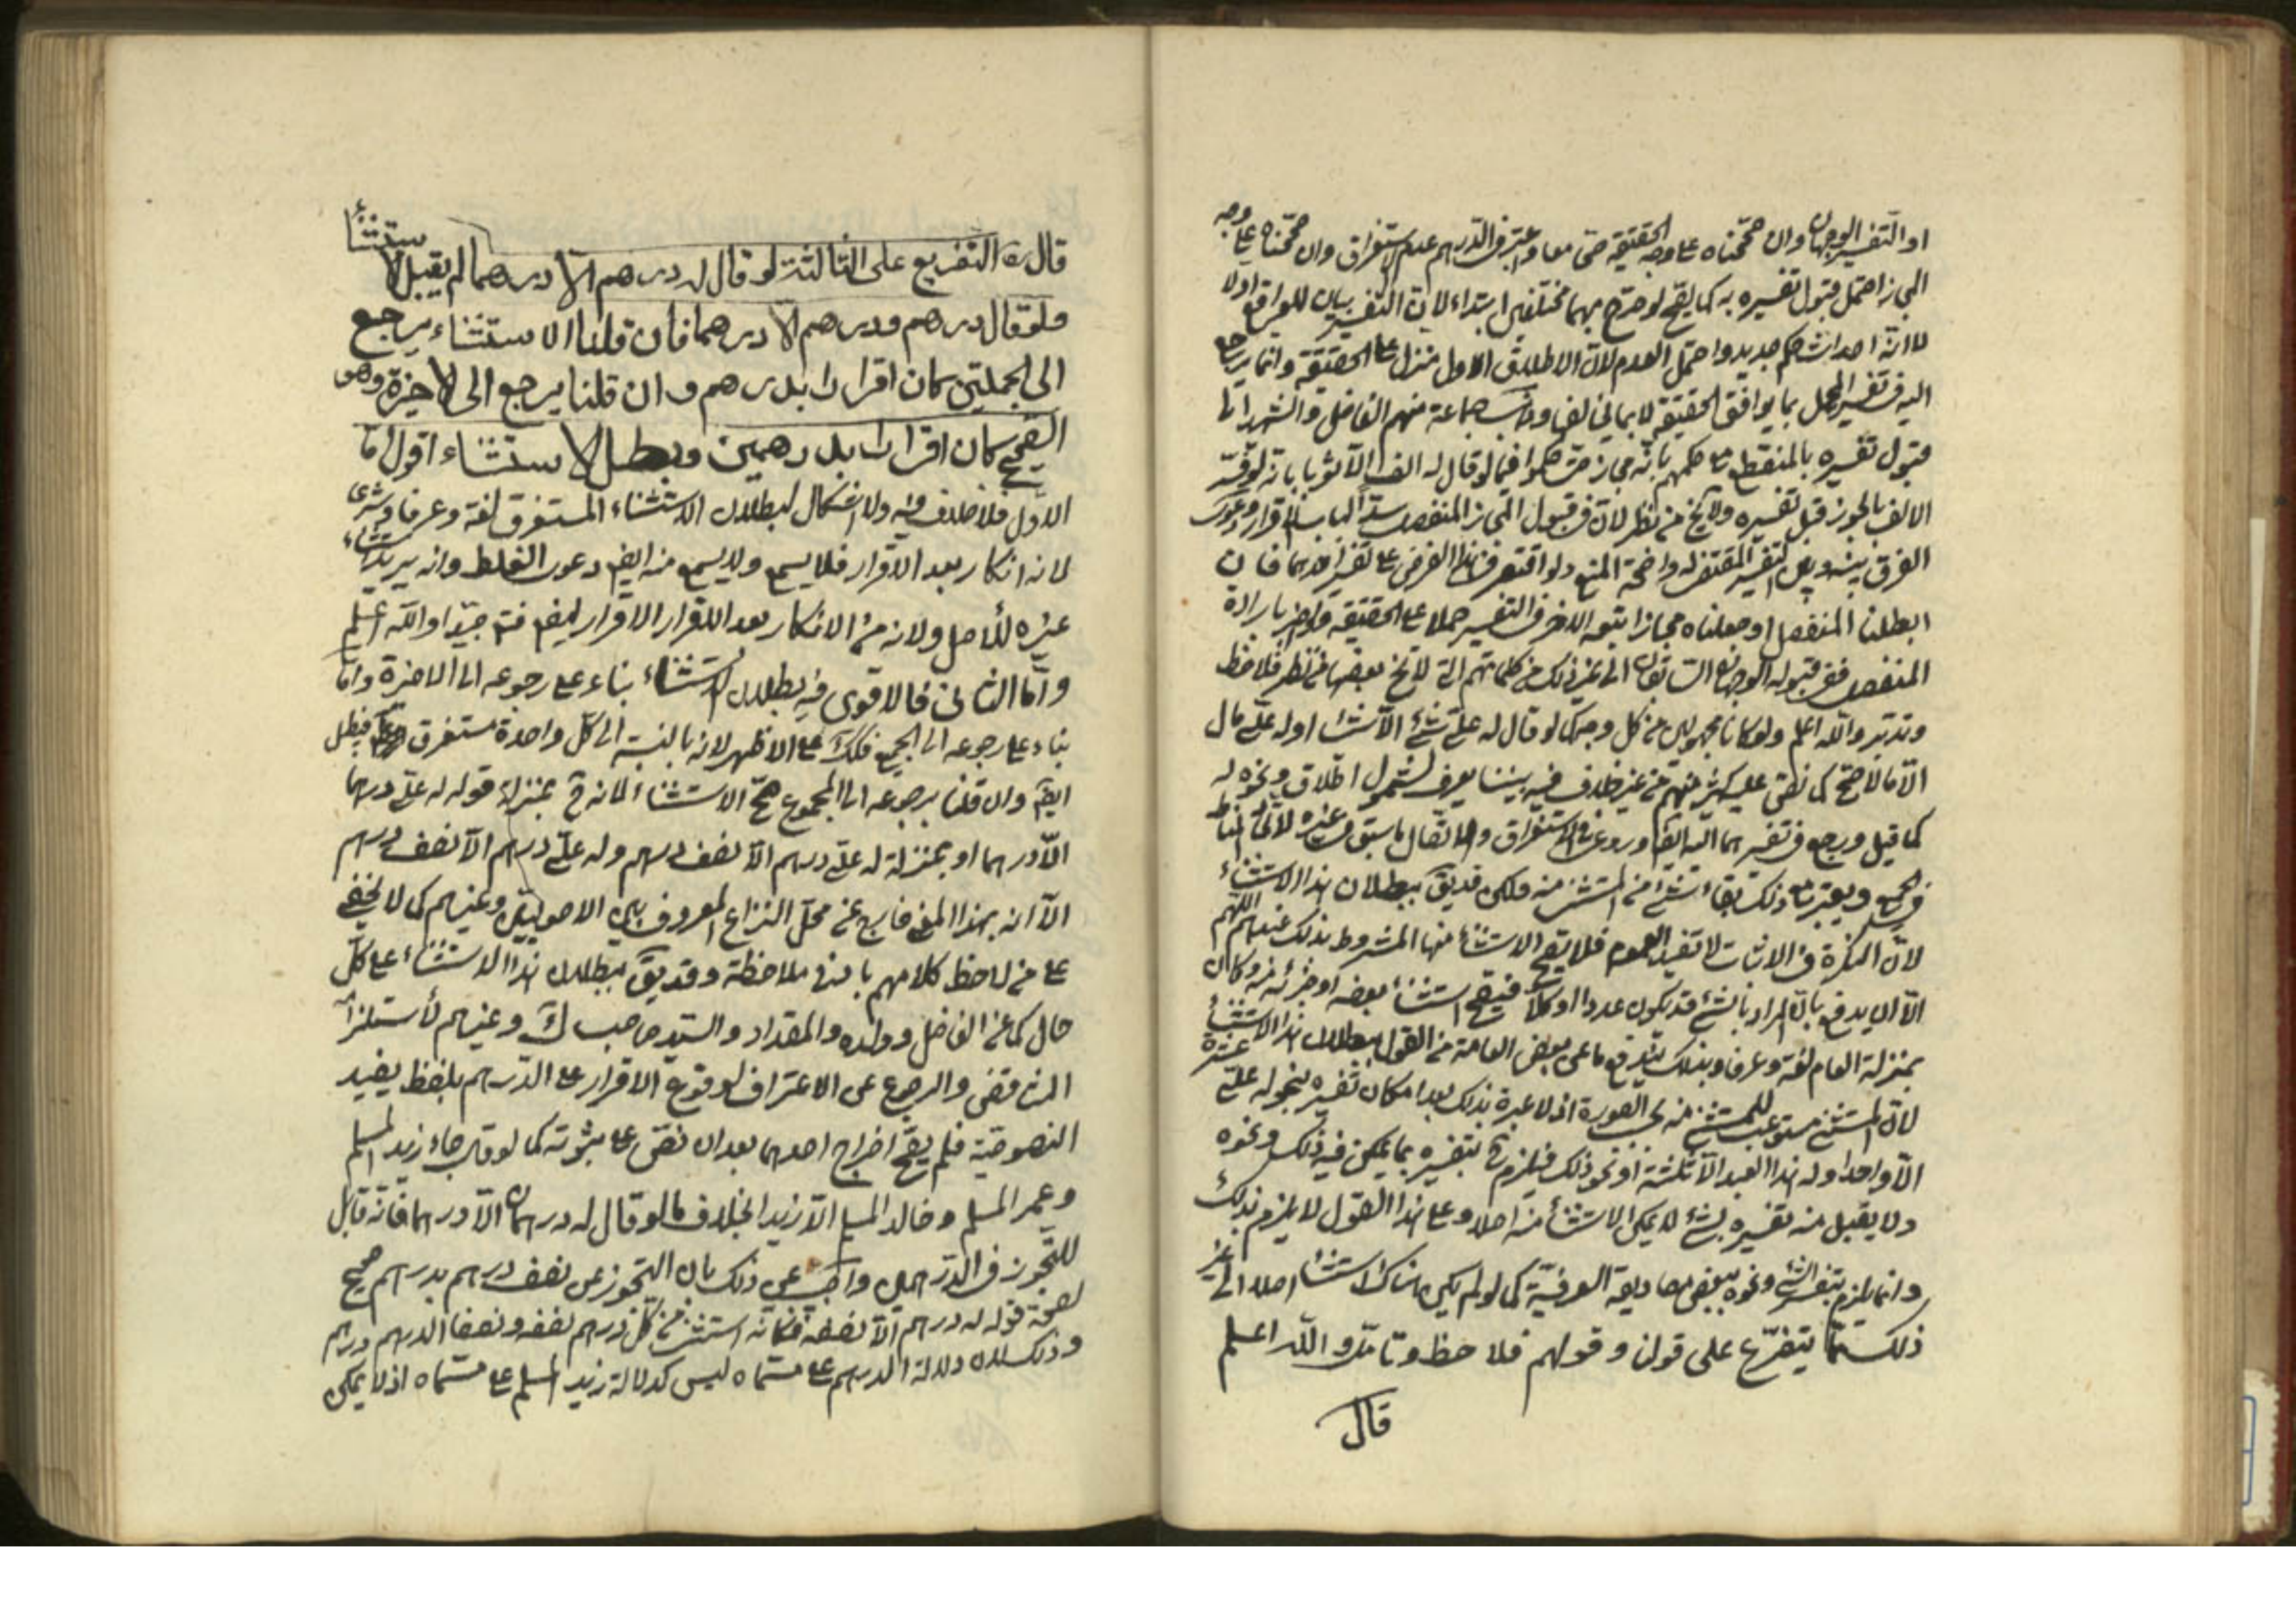 او التفسير الوجهان وان صححناه على وجه الحقيقة حتى معا واعتبر في الدرهم عدم استغراق وان صححناه على وجه
المجاز احتمل قبول تفسيره به كما يقبح لو صرح بهما مختلفين ابتداء لان التفسير بيان للواقع اولا
لا انه احداث حكم جديد واحتمل العدم لان الاطلاق الاول منزل على الحقيقة وانما يرجع
اليه في تفسير المجمل بما يوافق الحقيقة لا بما يخالفها و جماعة منهم الفاضل والشهيدان
قبول تفسيره بالمنفصل مع حكمهم بانه مجاز حيث حكموا فيما لو قال له الف الا ثوبا بانه لو فسر
الالف بالجوز قبل تفسيره ولا يخ من نظر لان في قبول المجاز المنفصل سد لباب الاقرار ودعوى
الفرق بينه وبين التفسير المقتضى له واضحة المنع ولو اقتصر في هذا الفرض على تفسير احدهما فان
ابطلنا المنفصل او جعلناه مجازا تبعه الاخر في التفسير حملا على الحقيقة ولو اخبر بارادة
المنفصل ففي قبوله الوجهان السابقان الى غير ذلك من كلماتهم التي لا يخ بعضها من نظر فلاحظ
وتدبر والله اعلم ولو كانا مجهولين من كل وجه كما لو قال له علي شئ الا شئا او له علي مال
الا مالا صح كما نص عليه كثير منهم من غير خلاف فيه بيننا يعرف لشمول اطلاق ونحوه له
كما قيل ورجع في تفسيرهما اليه ايضا وروعي في الاستغراق والاتصال ما سبق في غيره لاتحاد المناط
في الجميع ويعتبر مع ذلك بقاء شئ من المستثنى منه ولكن قد يق ببطلان هذا الاستثناء
لان النكرة في الاثبات لا تفيد العموم فلا يصح الاستثناء منها المشروط بذلك عندهم اللهم
الا ان يدفع بان المراد بالشئ قد يكون عددا او كلا فيصح استثناء بعضه او جزئه منه وكان
بمنزلة العام لغة وعرفا وبذلك يندفع ما عن بعض العامة من القول ببطلان هذا الاستثناء
لان المستثنى مستوعب للمستثنى منه بحسب الصورة اذ لا عبرة بذلك بعد امكان تفسيره بنحو له علي عشرة
الا واحدا وله هذا العبد الا ثلثه او نحو ذلك فيلزم ح بتفسيره بما يمكن فيه ذلك ونحوه
ولا يقبل منه تفسيره بشئ لا يمكن الاستثناء منه اصلا وعلى هذا القول لا يلزم بذلك
وانما يلزم بتفسير الشئ ونحوه ببعض مصاديقه العرفية كما لو لم يكن هناك استثناء اصلا الى غير
ذلك مما يتفرع على قولنا وقولهم فلاحظ وتامل والله اعلم
قال
قال ره التفريع على الثالثة لو قال له درهم الا درهما لم يقبل الاستثناء
ولو قال درهم ودرهم الا درهما فان قلنا الاستثناء يرجع
الى الجملتين كان اقرارا بدرهم وان قلنا يرجع الى الاخيرة وهو
الصحيح كان اقرارا بدرهمين وبطل الاستثناء اقول اما
الاول فلا خلاف فيه ولا اشكال لبطلان الاستثناء المستغرق لغة وعرفا وشرعا
لانه انكار بعد الاقرار فلا يسمع ولا يسمع منه ايض دعوى الغلط وانه يريد استثناء
غيره للاصل ولانه من الانكار بعد الاقرار الاقرار ايض فتم جيدا والله اعلم
واما الثاني فالاقوى فيه بطلان الاستثناء بناء على رجوعه الى الاخيرة واما
بناء على رجوعه الى الجميع فكك على الاظهر لانه بالنسبة الى كل واحدة مستغرق فيبطل
ايضا وان قلنا برجوعه الى المجموع صح الاستثناء لانه ح بمنزلة قوله له علي درهما
الا درهما او بمنزلة له علي درهم الا نصف درهم وله علي درهم الا نصف درهم
الا انه بهذا المعنى خارج عن محل النزاع المعروف بين الاصوليين وغيرهم كما لا يخفى
على من لاحظ كلامهم بادنى ملاحظة وقد يق ببطلان هذا الاستثناء على كل
حال كما عن الفاضل وولده والمقداد والسيد صاحب ك وغيرهم لاستلزامه
المناقض والرجوع عن الاعتراف لوقوع الاقرار على الدرهم بلفظ يفيد
النصوصية فلم يصح اخراج احدهما بعد ان نص على ثبوته كما لو قال جاء زيد المسلم
وعمر المسلم وخالد المسلم الا زيدا بخلاف ما لو قال له درهمان الا درهما فانه قابل
للتجوز في الدرهمين واجيب عن ذلك بان التجوز عن نصف درهم بدرهم صحيح
لصحة قوله له درهم الا نصفه فكانه استثنى من كل درهم نصفه ونصفا الدرهم درهم
وذلك لان دلالة الدرهم على مسماه ليس كدلالة زيد المسلم على مسماه اذ لا يمكن